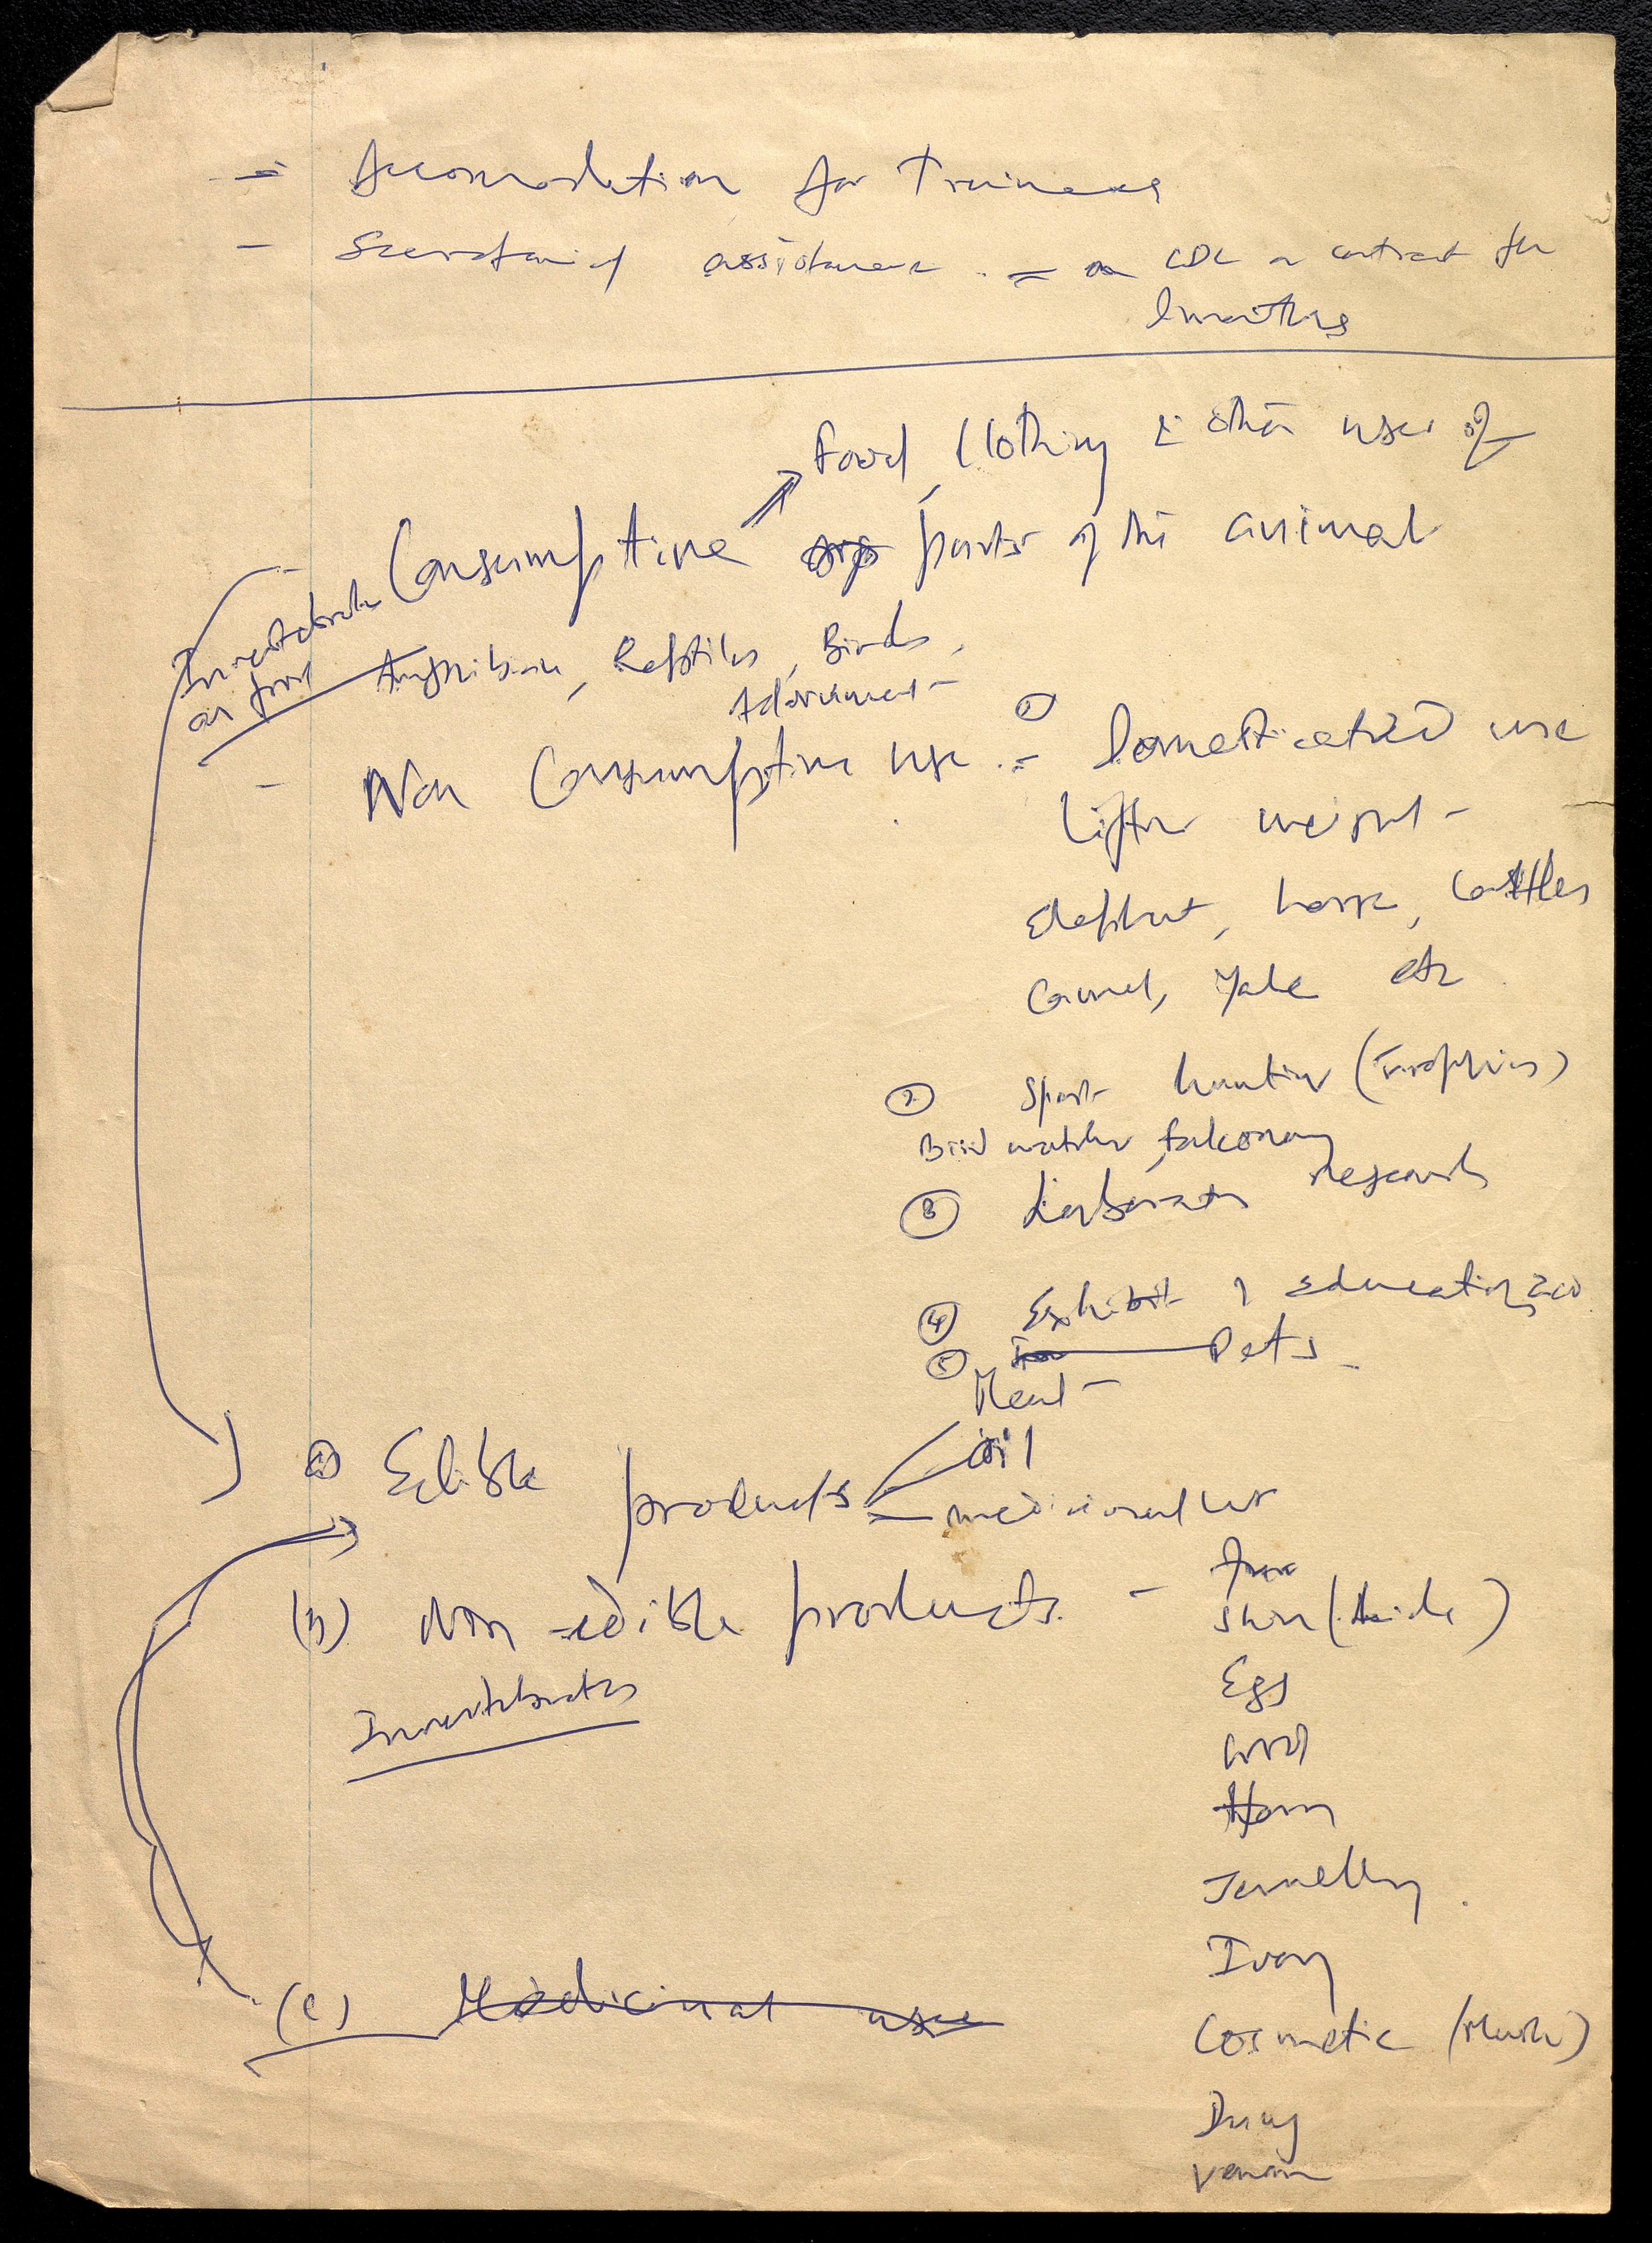 = Accomodation for Trainees
- Secretarial assistance. = on LDC on contract for
months
Food, Clothing & other uses of
Consumptive parts of the animal
Invertebrate
as food
Amphibian, Reptiles, Birds,
Adornment -
- Non Consumptive use. = ① Domesticated use
Lifter weight -
Elephant, horse, Cattles
Camel, Yake etc
② Sport hunting (Trophies)
Bird watcher, falconary
③ Laborator research
④ Exhibit & education, zoo
⑤ Pets
Meat -
oil
(a) Edible products
- medicinal use
(b) Non-edible products - Fur
Skin (hide)
Invertebrates
Egg
wool
Horn
Jewellry.
Ivory
(c) Medicinal use
Cosmetic (Musk)
Drug
Venom